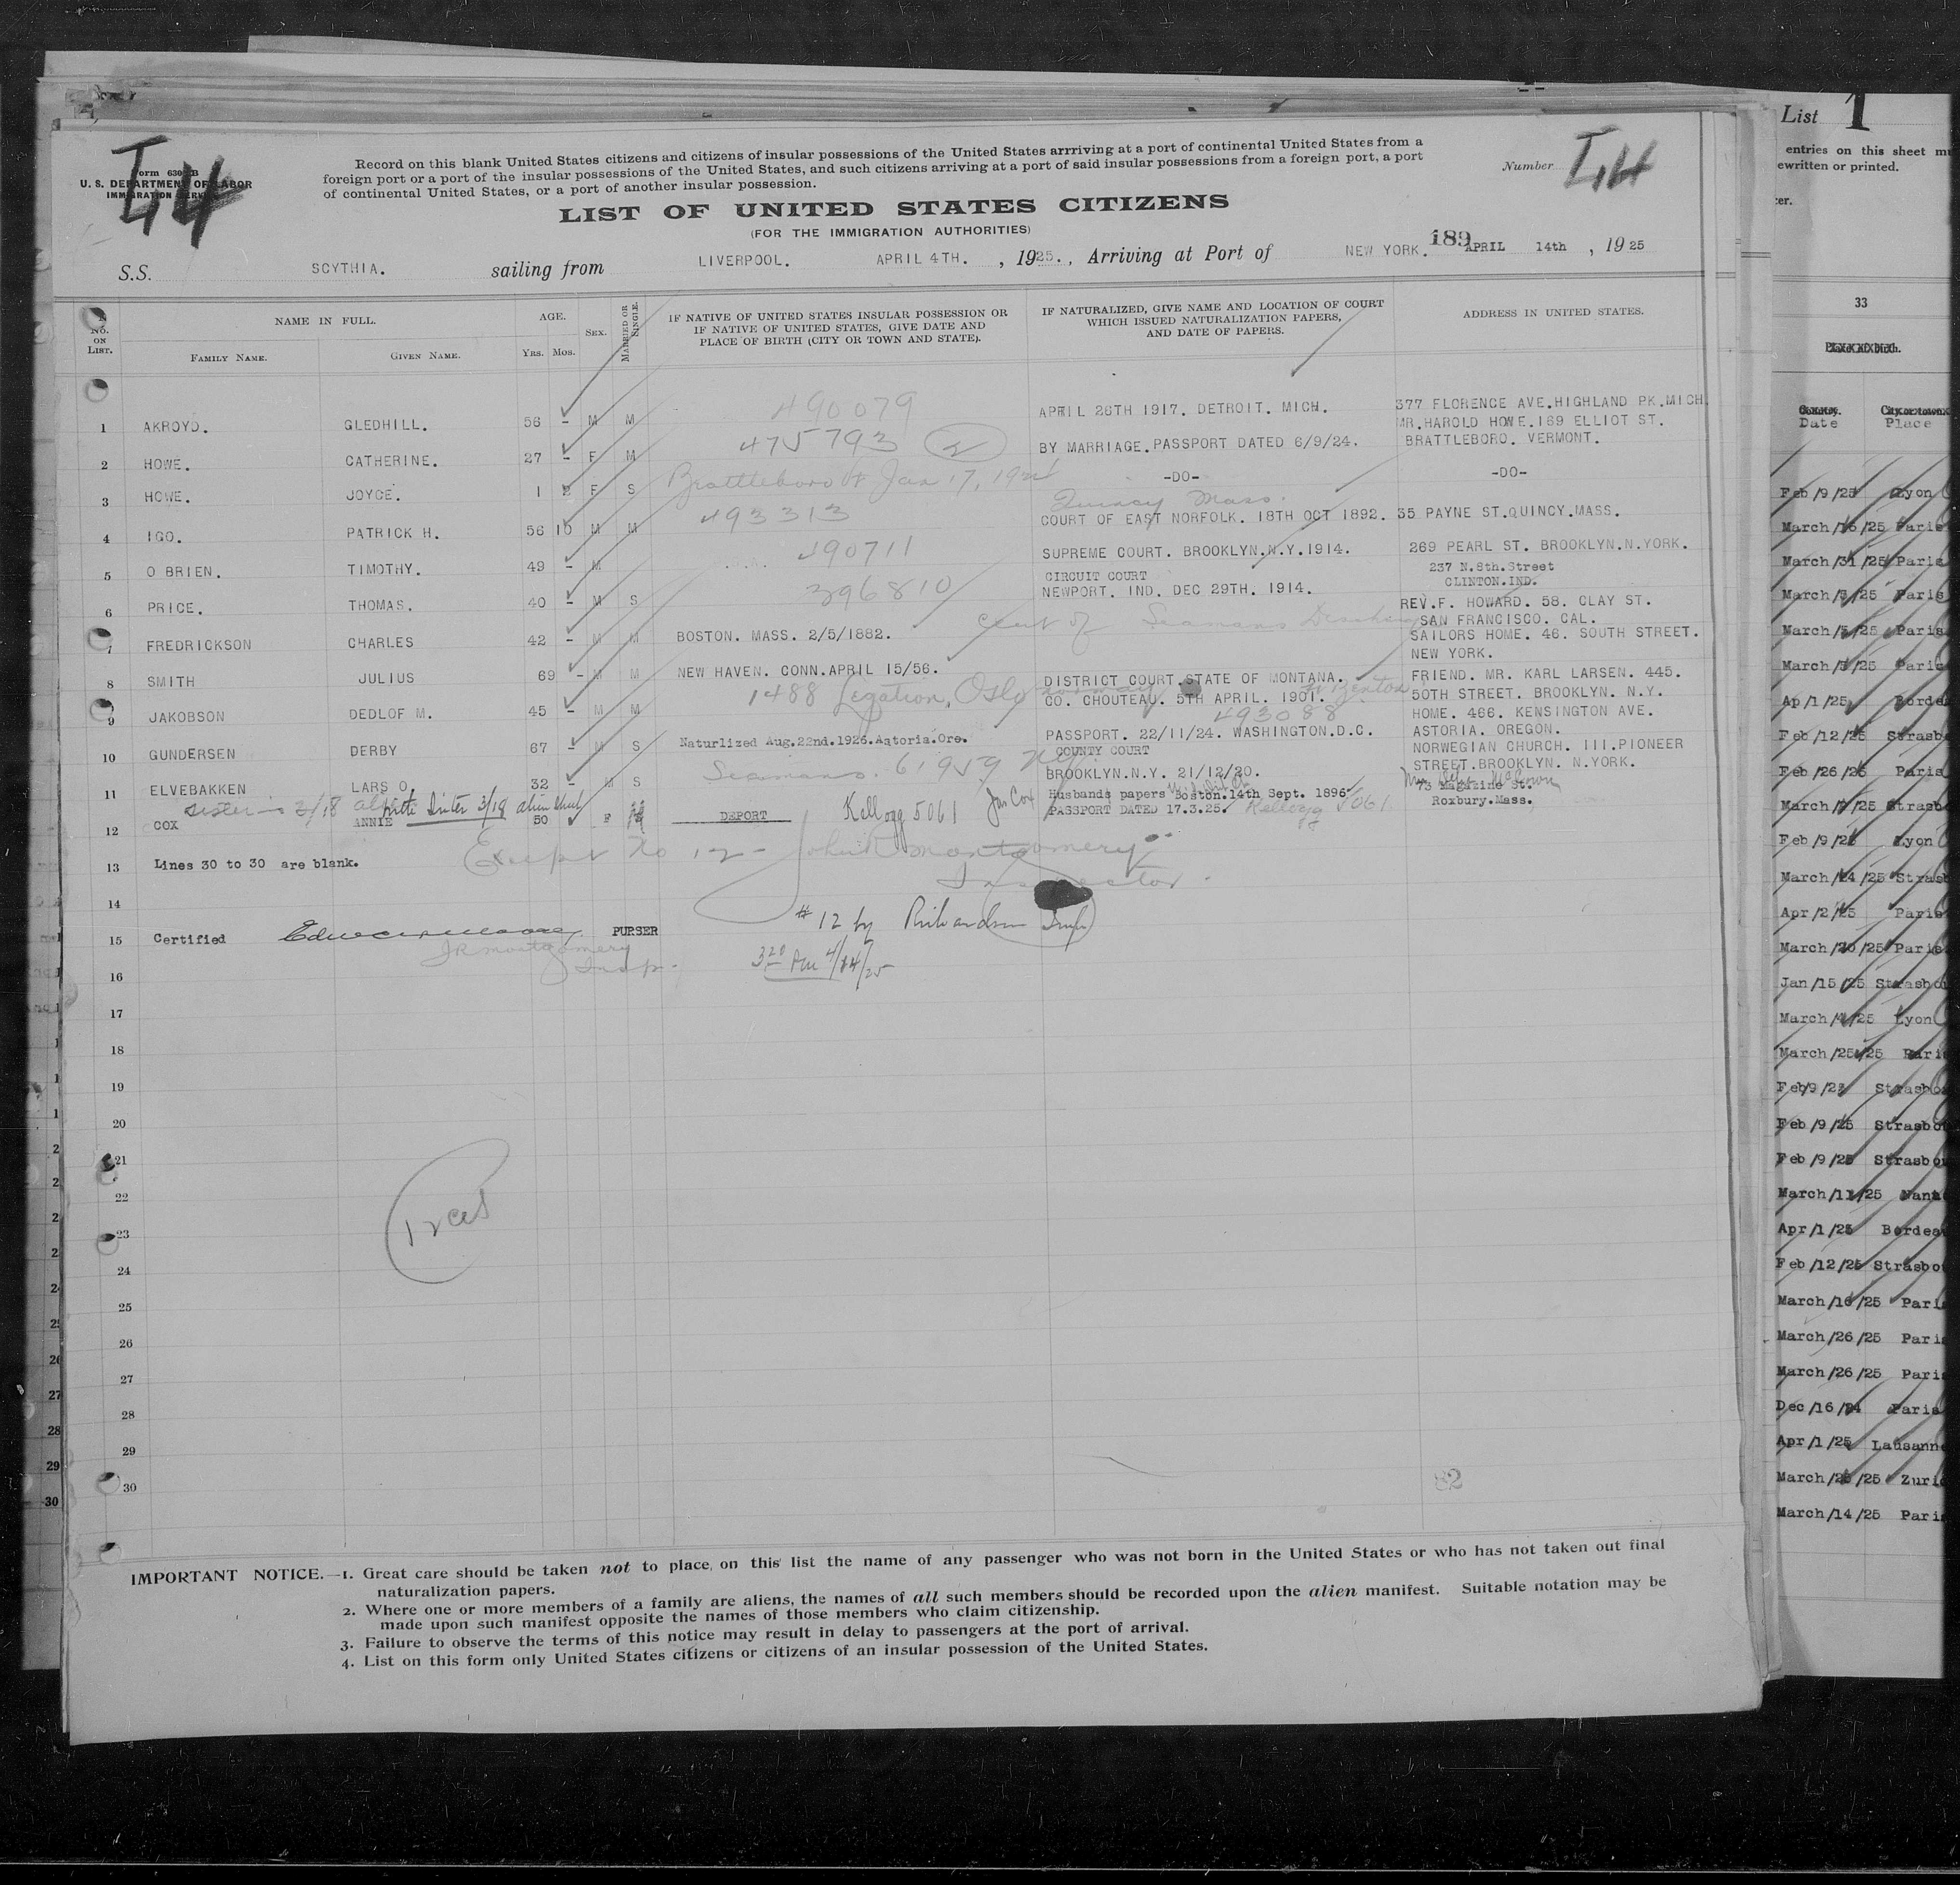 List 1
entries on this sheet mu
ewritten or printed.
Form 630 B
U. S. DEPARTMENT OF LABOR
IMMIGRATION SERVICE
Record on this blank United States citizens and citizens of insular possessions of the United States arrriving at a port of continental United States from a
foreign port or a port of the insular possessions of the United States, and such citizens arriving at a port of said insular possessions from a foreign port, a port
of continental United States, or a port of another insular possession.
Number
LIST OF UNITED STATES CITIZENS
(FOR THE IMMIGRATION AUTHORITIES)
189
S.S. SCYTHIA. sailing from LIVERPOOL. APRIL 4TH. , 1925. , Arriving at Port of NEW YORK. APRIL 14th , 1925
No. ON LIST.
NAME IN FULL.
FAMILY NAME. GIVEN NAME.
AGE. Yrs. Mos.
SEX.
MARRIED OR SINGLE.
IF NATIVE OF UNITED STATES INSULAR POSSESSION OR
IF NATIVE OF UNITED STATES, GIVE DATE AND
PLACE OF BIRTH (CITY OR TOWN AND STATE).
IF NATURALIZED, GIVE NAME AND LOCATION OF COURT
WHICH ISSUED NATURALIZATION PAPERS,
AND DATE OF PAPERS.
ADDRESS IN UNITED STATES.
1 AKROYD. GLEDHILL. 56 - M M 490079 APRIL 26TH 1917. DETROIT. MICH. 377 FLORENCE AVE.HIGHLAND PK.MICH.
MR.HAROLD HOWE.169 ELLIOT ST.
2 HOWE. CATHERINE. 27 - F M 475793 2 BY MARRIAGE.PASSPORT DATED 6/9/24. BRATTLEBORO. VERMONT.
3 HOWE. JOYCE. 1 F S Brattleboro Vt Jan 17, -DO- -DO-
Quincy Mass.
4 IGO. PATRICK H. 56 10 M M 493313 COURT OF EAST NORFOLK. 18TH OCT 1892. 35 PAYNE ST.QUINCY.MASS.
5 O BRIEN. TIMOTHY. 49 - M 490711 SUPREME COURT. BROOKLYN.N.Y.1914. 269 PEARL ST. BROOKLYN.N.YORK.
CIRCUIT COURT 237 N.8th.Street
CLINTON.IND.
6 PRICE. THOMAS. 40 - M S 396810 NEWPORT. IND. DEC 29TH. 1914.
REV.F. HOWARD. 58. CLAY ST.
7 FREDRICKSON CHARLES 42 - M M BOSTON. MASS. 2/5/1882. of Seamans SAN FRANCISCO. CAL.
SAILORS HOME. 46. SOUTH STREET.
8 SMITH JULIUS 69 - M M NEW HAVEN. CONN.APRIL 15/56. NEW YORK.
DISTRICT COURT.STATE OF MONTANA. FRIEND. MR. KARL LARSEN. 445.
9 JAKOBSON DEDLOF M. 45 - M M 1488 Legation, Oslo Norway CO. CHOUTEAU. 5TH APRIL. 1901. Ft Benton 50TH STREET. BROOKLYN. N.Y.
493088 HOME. 466. KENSINGTON AVE.
10 GUNDERSEN DERBY 67 - M S Naturlized Aug.22nd.1926.Astoria.Ore. PASSPORT. 22/11/24. WASHINGTON.D.C. ASTORIA. OREGON.
COUNTY COURT NORWEGIAN CHURCH. III.PIONEER
11 ELVEBAKKEN LARS O. 32 - M S Seamans. 61959 BROOKLYN.N.Y. 21/12/20. STREET.BROOKLYN. N.YORK.
sister 3/18 Sister 3/18 alien Husbands papers Boston.14th Sept. 1896 73 Magazine St.
12 COX ANNIE 50 F DEPORT Kellogg 5061 Jas Cox PASSPORT DATED 17.3.25. Kellogg 5061 Roxbury.Mass.
13 Lines 30 to 30 are blank. Except No 12 - Montgomery
Inspector
14
# 12 by Richardson Insp
15 Certified PURSER
JR Montgomery
Insp.
3 20 PM 4/14/25
16
17
18
19
20
21
22
23
24
25
26
27
28
29
30
82
IMPORTANT NOTICE.—1. Great care should be taken not to place on this list the name of any passenger who was not born in the United States or who has not taken out final
naturalization papers.
2. Where one or more members of a family are aliens, the names of all such members should be recorded upon the alien manifest. Suitable notation may be
made upon such manifest opposite the names of those members who claim citizenship.
3. Failure to observe the terms of this notice may result in delay to passengers at the port of arrival.
4. List on this form only United States citizens or citizens of an insular possession of the United States.
33
Date Place
Feb/9/25 Lyon
March/16/25 Paris
March/31/25 Paris
March/3/25 Paris
March/3/25 Paris
March/3/25 Paris
Ap/1/25 Borde
Feb/12/25 Strasb
Feb/26/25 Paris
March/ /25 Strasb
Feb/9/25 Lyon
March/24/25 Strasb
Apr/2/25 Paris
March/20/25 Paris
Jan/15/25 Strasbo
March/4/25 Lyon
March/25/25 Pari
Feb/9/25 Strasbo
Feb/9/25 Strasbo
Feb/9/25 Strasbo
March/11/25 Nant
Apr/1/25 Bordea
Feb/12/25 Strasbo
March/16/25 Pari
March/26/25 Pari
March/26/25 Pari
Dec/16/24 Paris
Apr/1/25 Lausanne
March/25 Zuri
March/14/25 Pari